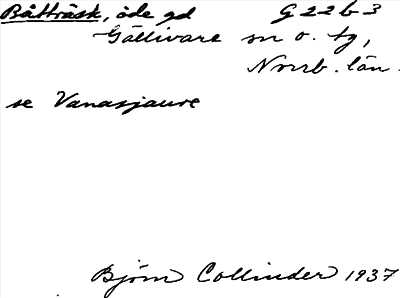 Båtträsk, öde gd G 22 b 3
Gällivare sn o. tg,
Norrb. län.
se Vanasjaure
Björn Collinder 1937